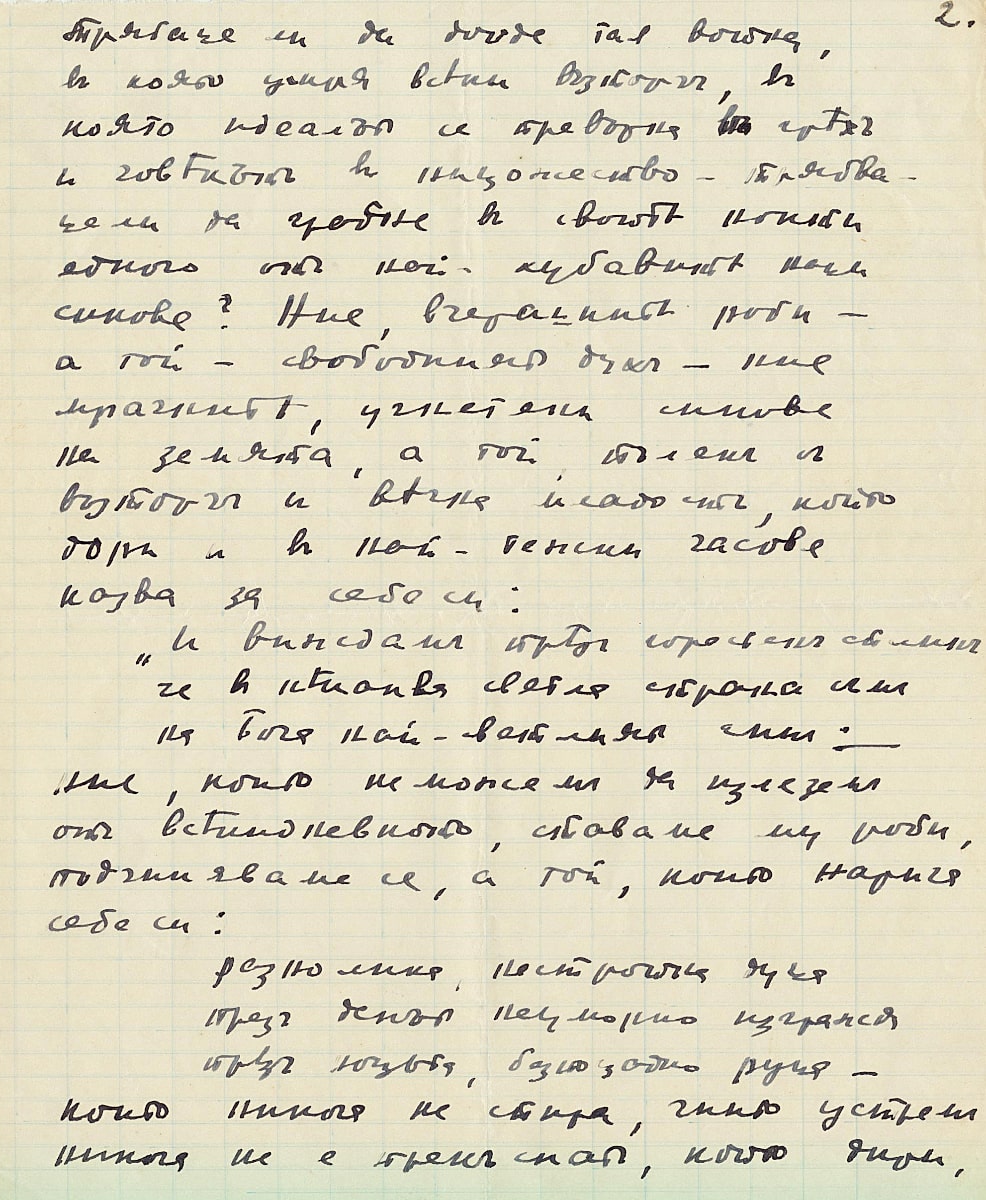 2.
трябаше ли да дойде тая война,
въ която умря всѣки възторгъ, въ
която идеалътъ се превърна въ грѣхъ
и човѣкътъ въ нищожество – трябва-
ше ли да грабне въ своитѣ нокти
едного отъ най-хубавитѣ наши
синове? Ние, вчерашнитѣ роби –
а той – свободниятъ духъ – ние
мрачнитѣ, угнетени синове
на земята, а той пъленъ съ
възторгъ и вѣчна младость, който
дори и въ най-тежки часове
казва за себе си:
„И виждамъ прѣзъ горестенъ сълзи
че въ нѣкаква светла страна съмъ
на Бога най-светлиятъ синъ: —
ние, които не можемъ да излеземъ
отъ всѣкидневното, ставаме му роби,
подчиняваме се, а той, който нарича
себе си:
разнолика, нестройна душа
презъ деньтъ неуморно изгражда
прѣзъ нощьта, безпощадно руша –
който никога не спира, чиито устремъ
никога не е прекъснатъ, който дири,